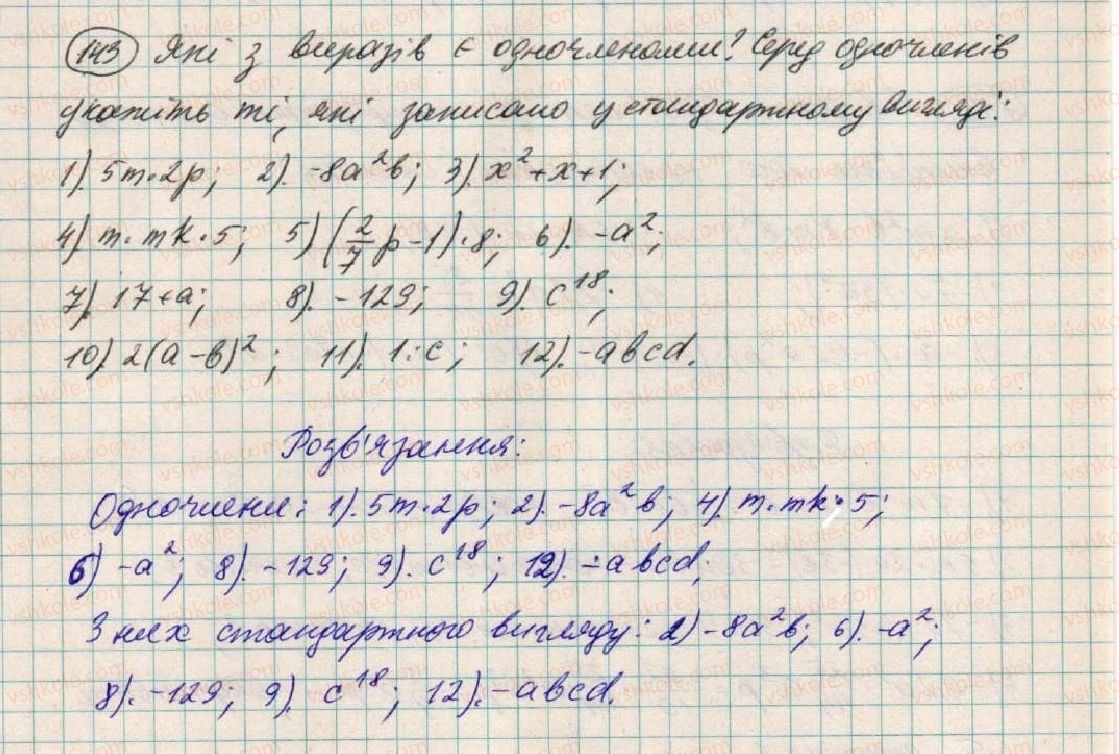 143 Які з виразів є одночленами? Серед одночленів
укажіть ті, які записано у стандартному вигляді:
1). 5m·2p; 2). -8a²b; 3). x²+x+1;
4) m·mk·5; 5) (2/7 p - 1)·8; 6). -a²;
7). 17+a; 8). -129; 9). c¹⁸;
10) 2(a-b)²; 11). 1:c; 12). -abcd.
Розв'язання:
Одночлени: 1). 5m·2p; 2). -8a²b; 4). m·mk·5;
6) -a²; 8). -129; 9). c¹⁸; 12). -abcd;
З них стандартного вигляду: 2) -8a²b; 6). -a²;
8). -129; 9). c¹⁸; 12). -abcd.